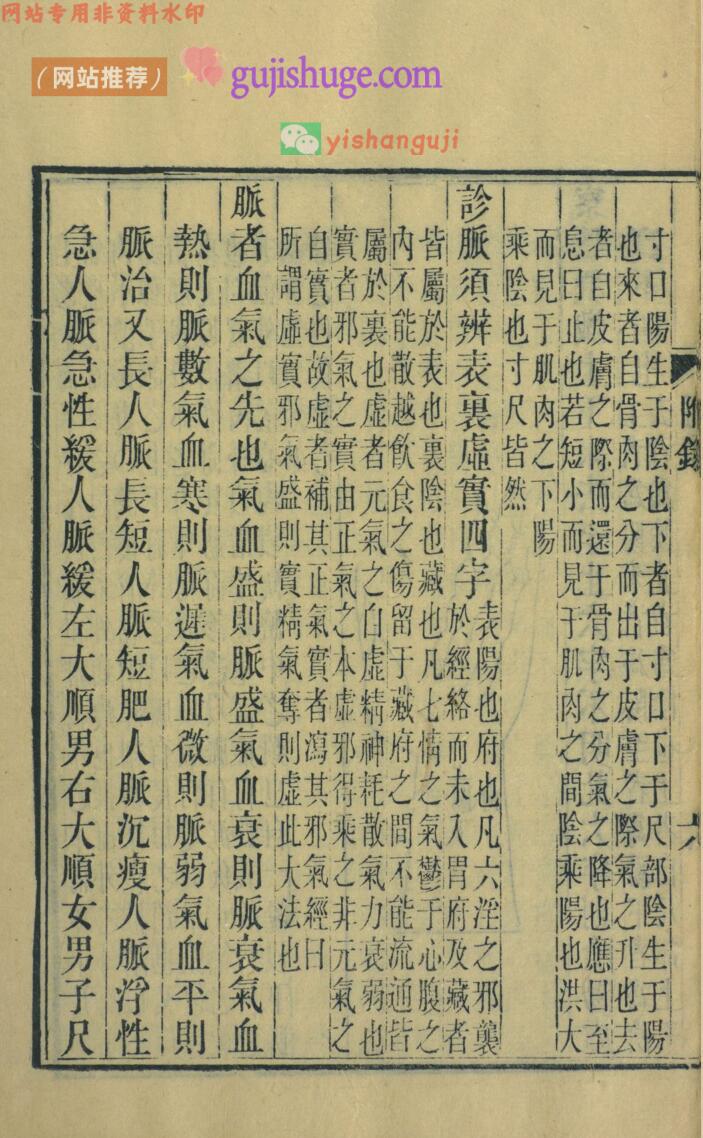 网站专用非资料水印
（网站推荐） gujishuge.com
yishanguji
附錄 六
寸口陽生于陰也下者自寸口下于尺部陰生于陽
也來者自骨肉之分而出于皮膚之際氣之升也去
者自皮膚之際而還于骨肉之分氣之降也應曰至
息曰止也若短小而見于肌肉之間陰乘陽也洪大
而見于肌肉之下陽
乘陰也寸尺皆然
診脈須辨表裏虛實四字
表陽也府也凡六淫之邪襲
於經絡而未入胃府及藏者
皆屬於表也裏陰也藏也凡七情之氣鬱于心腹之
內不能散越飲食之傷留于藏府之間不能流通皆
屬於裏也虛者元氣之自虛精神耗散氣力衰弱也
實者邪氣之實由正氣之本虛邪得乘之非元氣之
自實也故虛者補其正氣實者瀉其邪氣經曰
所謂虛實邪氣盛則實精氣奪則虛此大法也
脈者血氣之先也氣血盛則脈盛氣血衰則脈衰氣血
熱則脈數氣血寒則脈遲氣血微則脈弱氣血平則
脈治又長人脈長短人脈短肥人脈沉瘦人脈浮性
急人脈急性緩人脈緩左大順男右大順女男子尺